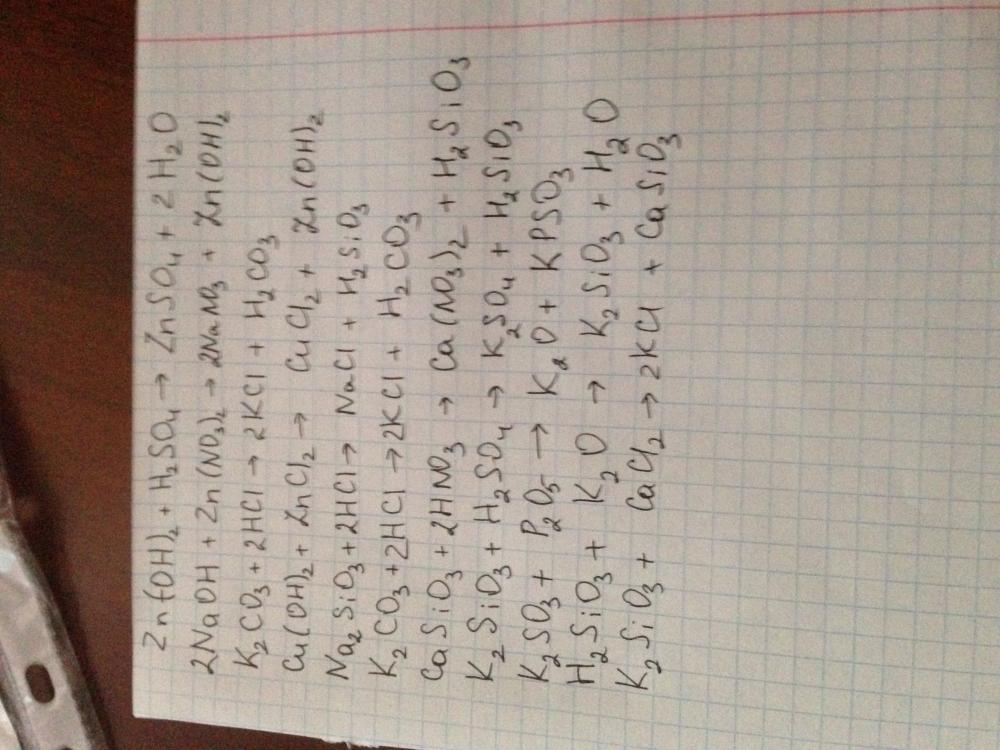 Zn(OH)₂ + H₂SO₄ → ZnSO₄ + 2H₂O
2NaOH + Zn(NO₃)₂ → 2NaNO₃ + Zn(OH)₂
K₂CO₃ + 2HCl → 2KCl + H₂CO₃
Cu(OH)₂ + ZnCl₂ → CuCl₂ + Zn(OH)₂
Na₂SiO₃ + 2HCl → NaCl + H₂SiO₃
K₂CO₃ + 2HCl → 2KCl + H₂CO₃
CaSiO₃ + 2HNO₃ → Ca(NO₃)₂ + H₂SiO₃
K₂SiO₃ + H₂SO₄ → K₂SO₄ + H₂SiO₃
K₂SO₃ + P₂O₅ → K₂O + KPSO₃
H₂SiO₃ + K₂O → K₂SiO₃ + H₂O
K₂SiO₃ + CaCl₂ → 2KCl + CaSiO₃